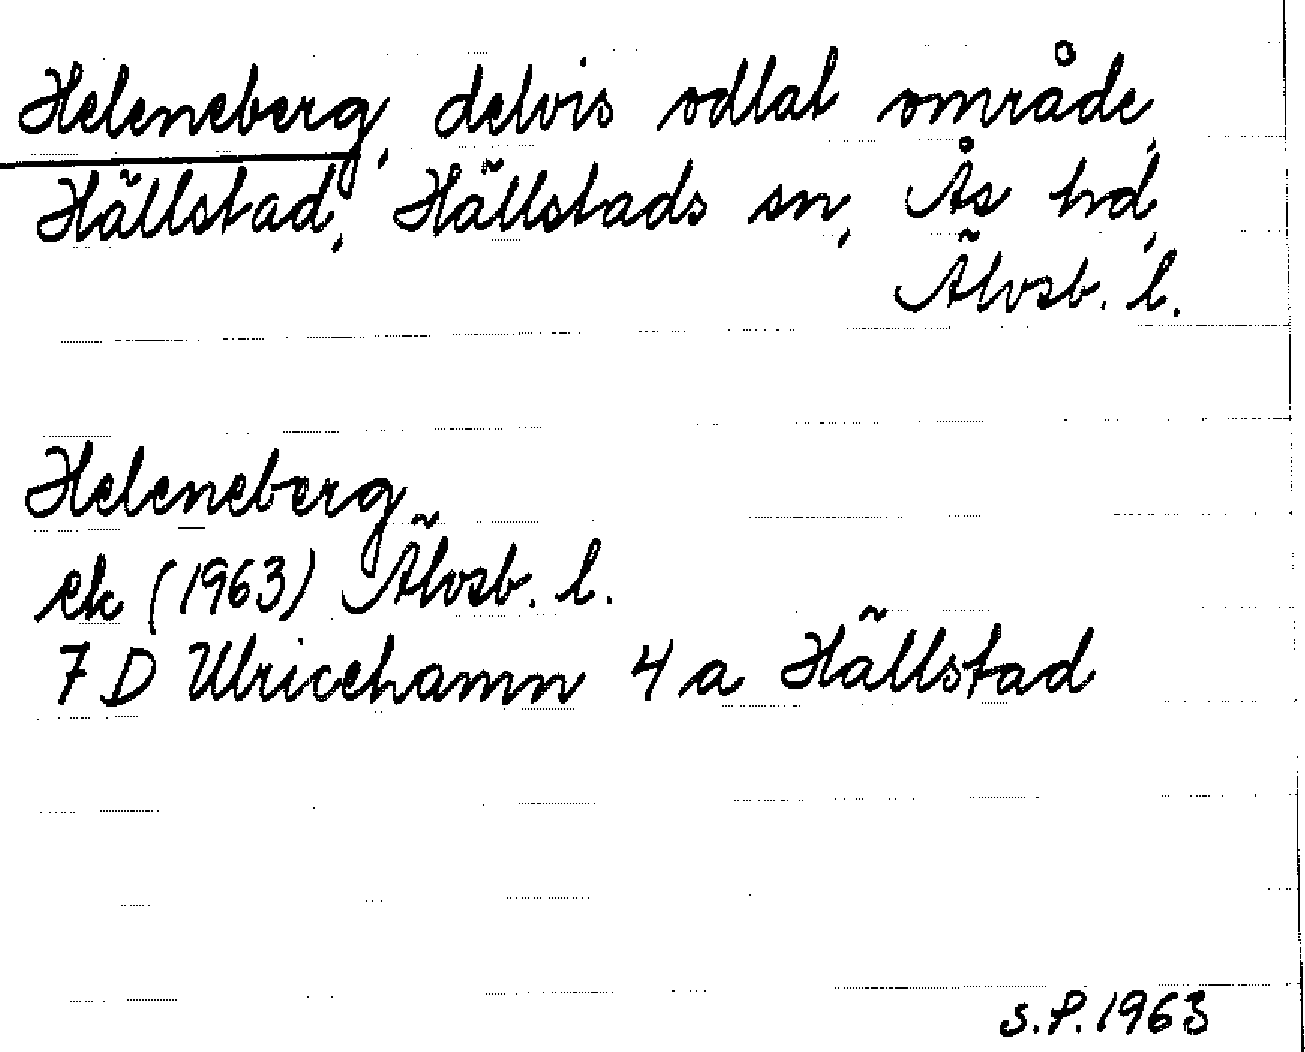 Heleneberg, delvis odlat område,
Hällstad, Hällstads sn, Ås hd,
Älvsb. l.
Heleneberg
ek (1963) Älvsb. l.
7 D Ulricehamn 4 a Hällstad
S.P. 1963